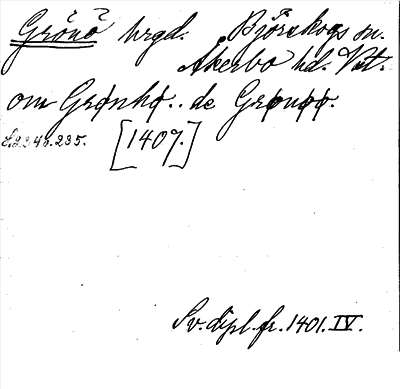 Grönö hrgd. Björskogs sn.
Åkerbo hd. Vstm.
om Grønhø.. de Grønøø.
[1407.]
Sv. dipl. fr. 1401. IV.